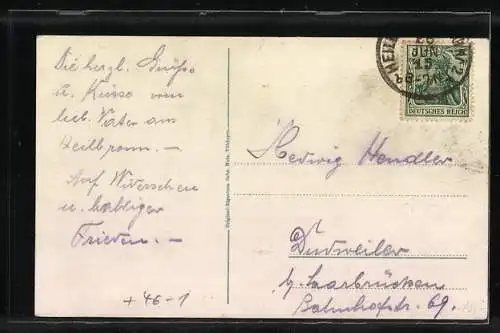 Die herzl. Grüße
u. Küsse vom
lieb. Vater aus
Heilbronn. –
Auf Wiersehen
u. baldiger
Frieden. –
+ 46-1
HEILB
26
JUN
15
6-7N
DEUTSCHES REICH
Hedwig Hendler
Dudweiler
b. Saarbrücken
Bahnhofstr. 69.